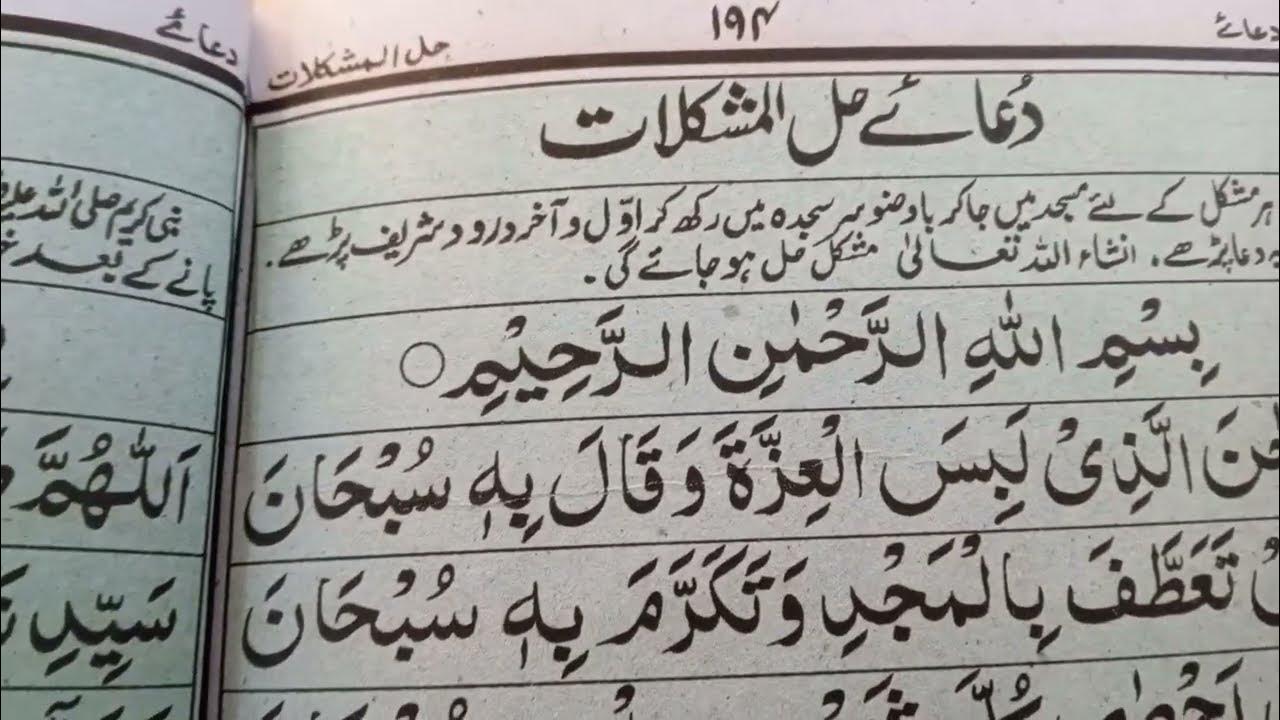 دعائے
۱۹۴
حل المشکلات
دُعائے حل المشکلات
ہر مشکل کے لئے مسجد میں جا کر باوضو سر سجدہ میں رکھ کر اوّل و آخر درود شریف پڑھے.
یہ دعا پڑھے. انشاء اللہ تعالیٰ مشکل حل ہو جائے گی.
بِسْمِ اللّٰهِ الرَّحْمٰنِ الرَّحِيْمِ ○
الَّذِىْ لَبِسَ الْعِزَّةَ وَقَالَ بِهٖ سُبْحَانَ
تَعَطَّفَ بِالْمَجْدِ وَتَكَرَّمَ بِهٖ سُبْحَانَ
دعائے
نبی کریم صلی اللہ
پانے کے بعد
اَللّٰهُمَّ
سَيِّدِ